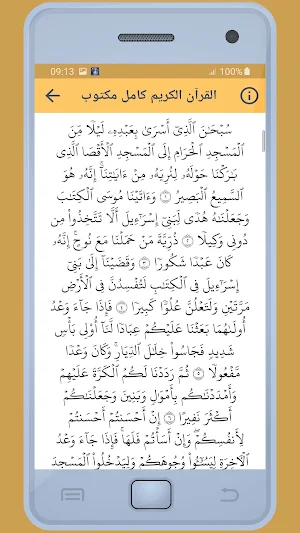 09:13 100%
القرآن الكريم كامل مكتوب
سُبْحَٰنَ ٱلَّذِىٓ أَسْرَىٰ بِعَبْدِهِۦ لَيْلًا مِّنَ
ٱلْمَسْجِدِ ٱلْحَرَامِ إِلَى ٱلْمَسْجِدِ ٱلْأَقْصَا ٱلَّذِى
بَٰرَكْنَا حَوْلَهُۥ لِنُرِيَهُۥ مِنْ ءَايَٰتِنَآ ۚ إِنَّهُۥ هُوَ
ٱلسَّمِيعُ ٱلْبَصِيرُ ۝١ وَءَاتَيْنَا مُوسَى ٱلْكِتَٰبَ
وَجَعَلْنَٰهُ هُدًى لِّبَنِىٓ إِسْرَٰٓءِيلَ أَلَّا تَتَّخِذُوا۟ مِن
دُونِى وَكِيلًا ۝٢ ذُرِّيَّةَ مَنْ حَمَلْنَا مَعَ نُوحٍ ۚ إِنَّهُۥ
كَانَ عَبْدًا شَكُورًا ۝٣ وَقَضَيْنَآ إِلَىٰ بَنِىٓ
إِسْرَٰٓءِيلَ فِى ٱلْكِتَٰبِ لَتُفْسِدُنَّ فِى ٱلْأَرْضِ
مَرَّتَيْنِ وَلَتَعْلُنَّ عُلُوًّا كَبِيرًا ۝٤ فَإِذَا جَآءَ وَعْدُ
أُولَىٰهُمَا بَعَثْنَا عَلَيْكُمْ عِبَادًا لَّنَآ أُو۟لِى بَأْسٍ
شَدِيدٍ فَجَاسُوا۟ خِلَٰلَ ٱلدِّيَارِ ۚ وَكَانَ وَعْدًا
مَّفْعُولًا ۝٥ ثُمَّ رَدَدْنَا لَكُمُ ٱلْكَرَّةَ عَلَيْهِمْ
وَأَمْدَدْنَٰكُم بِأَمْوَٰلٍ وَبَنِينَ وَجَعَلْنَٰكُمْ
أَكْثَرَ نَفِيرًا ۝٦ إِنْ أَحْسَنتُمْ أَحْسَنتُمْ
لِأَنفُسِكُمْ ۖ وَإِنْ أَسَأْتُمْ فَلَهَا ۚ فَإِذَا جَآءَ وَعْدُ
ٱلْءَاخِرَةِ لِيَسُۥٓـُٔوا۟ وُجُوهَكُمْ وَلِيَدْخُلُوا۟ ٱلْمَسْجِدَ